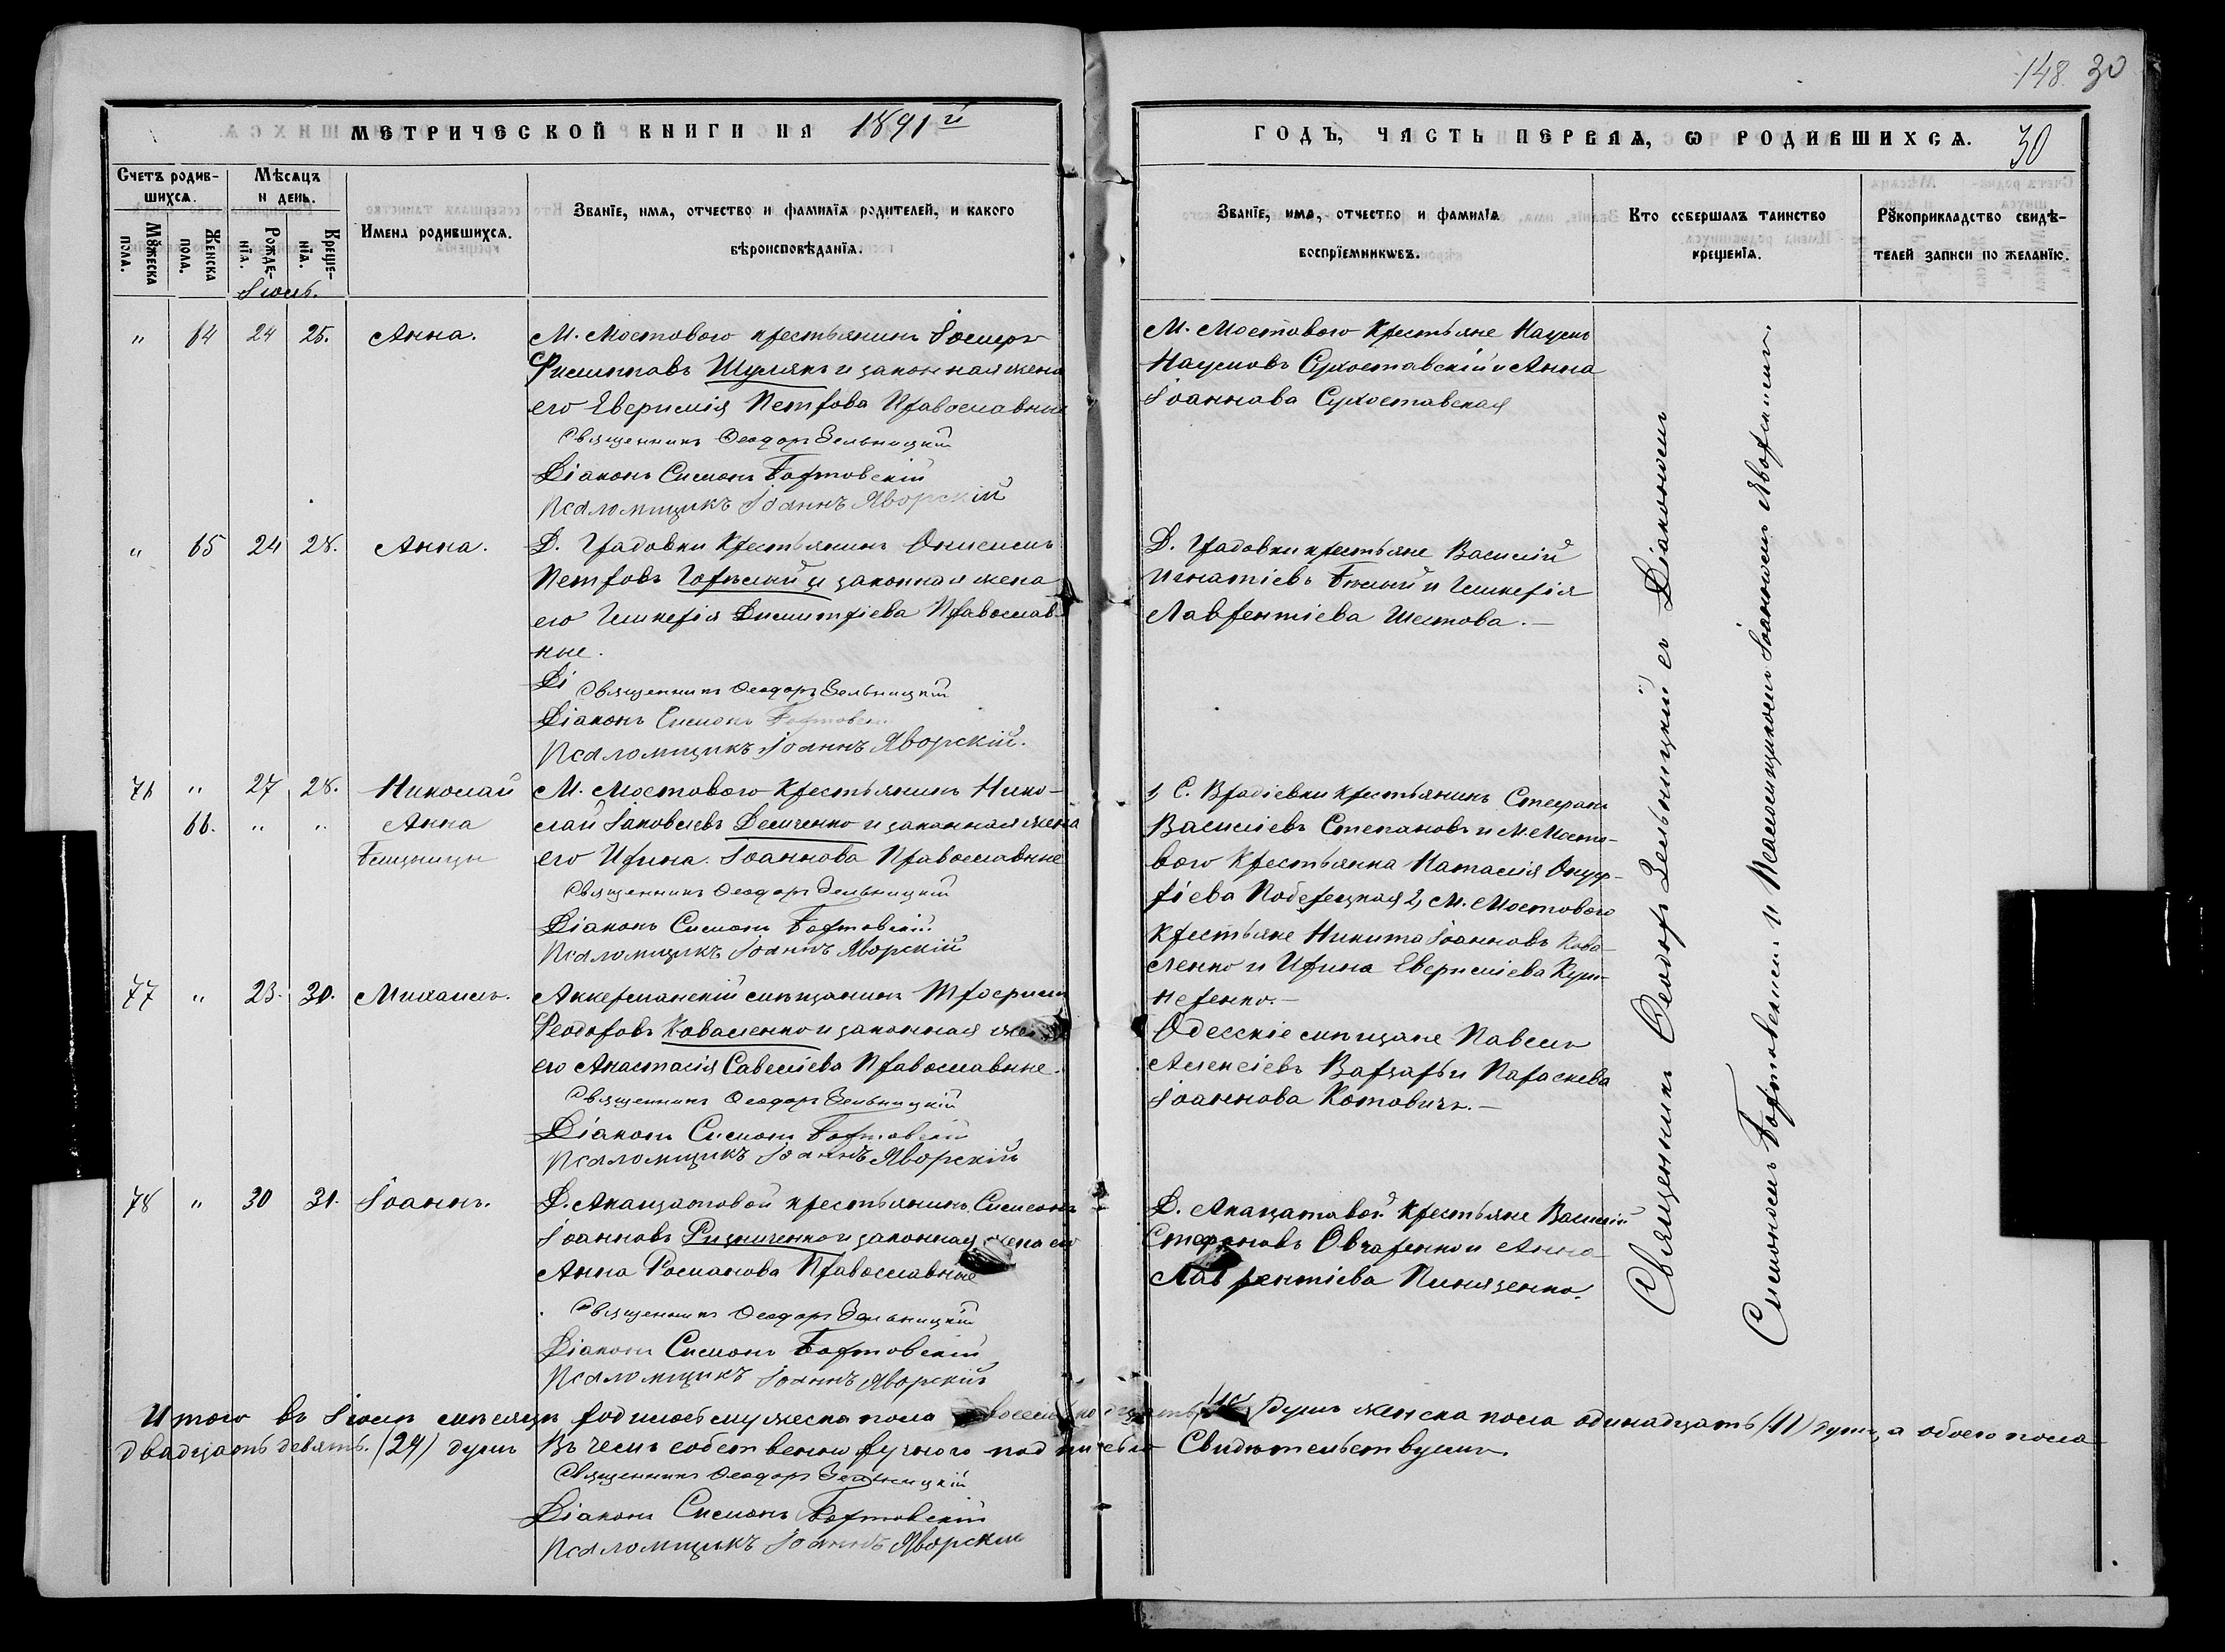 148. 30
МЕТРИЧЕСКОЙ КНИГИ НА 1891й
ГОДЪ, ЧАСТЬ ПЕРВАЯ, Ѡ РОДИВШИХСѦ. 30
Счетъ родив-
шихсѧ.
Мѣсѧцъ
и день.
Мꙋжеска
пола.
Женска
пола.
Рожде-
нїѧ.
Креще-
нїѧ.
Имена родившихсѧ.
Званїе, имѧ, отчество и фамилїѧ родителей, и какого
вѣроисповѣданїѧ.
Званїе, имѧ, отчество и фамилїѧ
воспрїемникѡвъ.
Кто совершалъ таинство
крещенїѧ.
Рꙋкоприкладство свидѣ-
телей записи по желанїю.
Іюль.
" 64 24 25. Анна.
М. Мостового крестьянинъ Іосифъ
Филипповъ Шулякъ и законная жена
его Евфимія Петрова Православные
Священникъ Ѳеодоръ Зельницкій
Діаконъ Симонъ Бортовскій
Псаломщикъ Іоаннъ Яворскій
М. Мостового Крестьяне Наумъ
Наумовъ Сухоставскій и Анна
Іоаннова Сухоставская
" 65 24 28. Анна.
Д. Градовки Крестьянинъ Онисимъ
Петровъ Горѣлый и законная жена
его Гликерія Димитріева Православ-
ные.
Ді Священникъ Ѳеодоръ Зельницкій
Діаконъ Симонъ Бортовск
Псаломщикъ Іоаннъ Яворскій.
Д. Градовки крестьяне Василій
Игнатіевъ Бѣлый и Гликерія
Лаврентіева Шестова.—
76 " 27 28. Николай
66. " " Анна
Близнецы
М. Мостового Крестьянинъ Нико-
лай Іаковлевъ Демченко и законная жена
его Ирина Іоаннова Православные
Священникъ Ѳеодоръ Зельницкій
Діаконъ Симонъ Бортовскій
Псаломщикъ Іоаннъ Яворскій
1, С. Врадіевки крестьянинъ Стефанъ
Василіевъ Степановъ и М. Мосто-
вого Крестьянка Наталія Онуф-
ріева Поберецкая 2, М. Мостового
Крестьяне Никита Іоанновъ Кова-
ленко и Ирина Евфиміева Куш-
неренко.—
77 " 23. 30. Михаилъ.
Аккерманскій мѣщанинъ Трофимъ
Ѳеодоровъ Коваленко и законная жена
его Анастасія Савеліева Православные.
Священникъ Ѳеодоръ Зельницкій
Діаконъ Симонъ Бортовскій
Псаломщикъ Іоаннъ Яворскій
Одесскіе мѣщане Павелъ
Алексіевъ Варзарь и Параскева
Іоаннова Котовичъ.—
78 " 30 31. Іоаннъ.
Д. Акацатовой крестьянинъ Симеонъ
Іоанновъ Ризниченко и законная жена его
Анна Романова Православные
Священникъ Ѳеодоръ Зельницкій
Діаконъ Симонъ Бортовскій
Псаломщикъ Іоаннъ Яворскій
Д. Акацатовой Крестьяне Василій
Стефановъ Овчаренко и Анна
Лаврентіева Пинязенко.
Священникъ Ѳеодоръ Зельницкій съ Діакономъ
Симономъ Бортовскимъ и Псаломщикомъ Іоанномъ Яворскимъ.
Итого въ Іюлѣ мѣсяцѣ родилось мужеска пола восемнадцать душъ женска пола одинадцать (11) душъ, а обоего пола
двадцать девять. (29) душъ Въ чемъ собственноручного подписью Свидѣтельствуемъ.
Священникъ Ѳеодоръ Зельницкій
Діаконъ Симонъ Бортовскій
Псаломщикъ Іоаннъ Яворскій